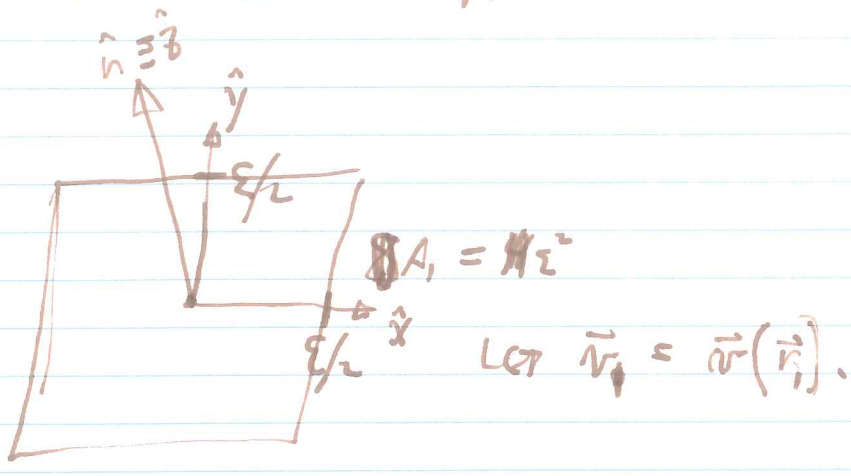 n̂ ≡ ẑ
ŷ
ε/2
A₁ = ε²
x̂
ε/2
LET v⃗₁ = v⃗(r⃗₁).